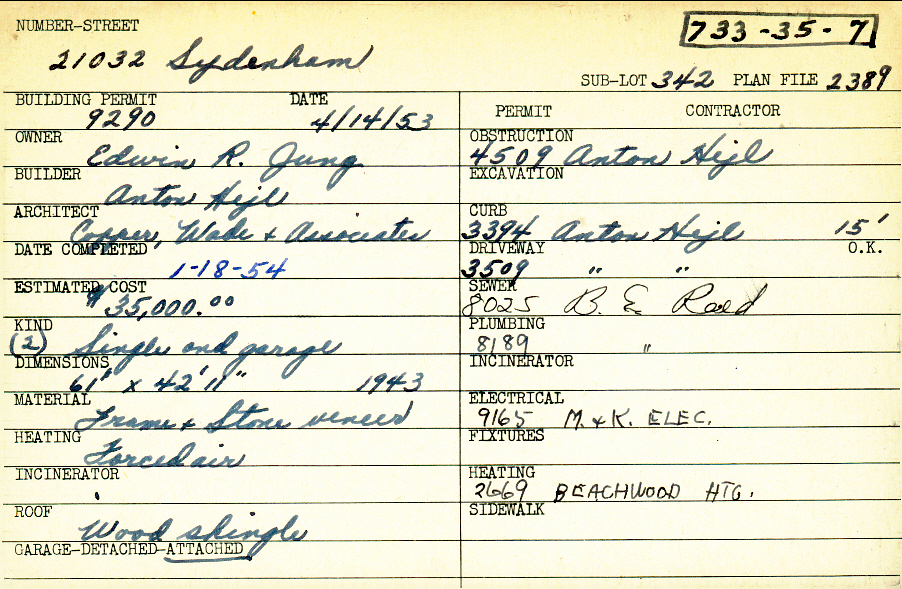 NUMBER-STREET
733-35-7
21032 Sydenham
SUB-LOT 342 PLAN FILE 2389
BUILDING PERMIT DATE
9290 4/14/53
PERMIT CONTRACTOR
OWNER
Edwin R. Jung
OBSTRUCTION
4509 Anton Hejl
BUILDER
Anton Hejl
EXCAVATION
ARCHITECT
Copper, Wade & Associates
CURB
3394 Anton Hejl 15'
DATE COMPLETED
1-18-54
DRIVEWAY O.K.
3509 " "
ESTIMATED COST
$35,000.00
SEWER
8025 B. E. Reed
KIND
(2) Single and garage
PLUMBING
8189 "
DIMENSIONS
61' x 42'11" 1943
INCINERATOR
MATERIAL
Frame & Stone veneer
ELECTRICAL
9165 M. & K. ELEC.
HEATING
Forced air
FIXTURES
INCINERATOR
HEATING
2669 BEACHWOOD HTG.
ROOF
Wood shingle
SIDEWALK
GARAGE-DETACHED-ATTACHED